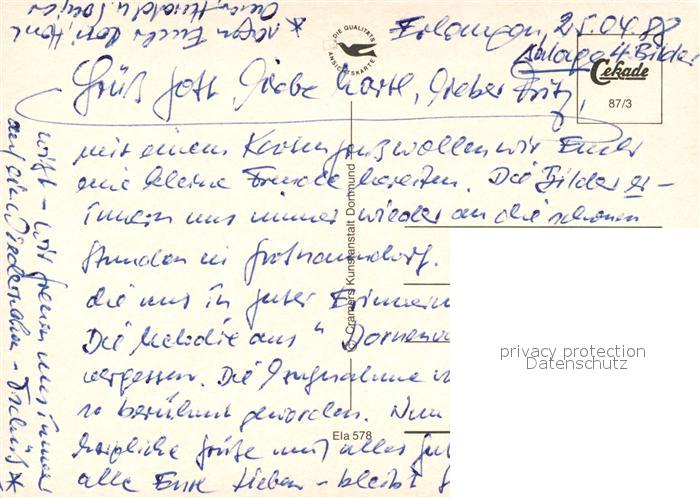 Erlangen, 25.04.88
Anlage 4 Bilder
DIE QUALITÄTS
ANSICHTSKARTE
Cekade
87/3
Grüß Gott, liebe Marte, lieber Fritz,
mit einem Kartengruß wollen wir Euch
eine kleine Freude bereiten. Die Bilder er-
innern uns immer wieder an die schönen
Stunden in
die uns in guter
Die Melodie aus "Dornenv
vergessen. Die
so berühmt geworden. Nun
herzliche Grüße und alles Gut
alle Eure Lieben - bleibt
© Cramers Kunstanstalt Dortmund
Ela 578
privacy protection
Datenschutz
wir freuen uns immer
auf ein Wiedersehen - Tschüß *
* von Euch